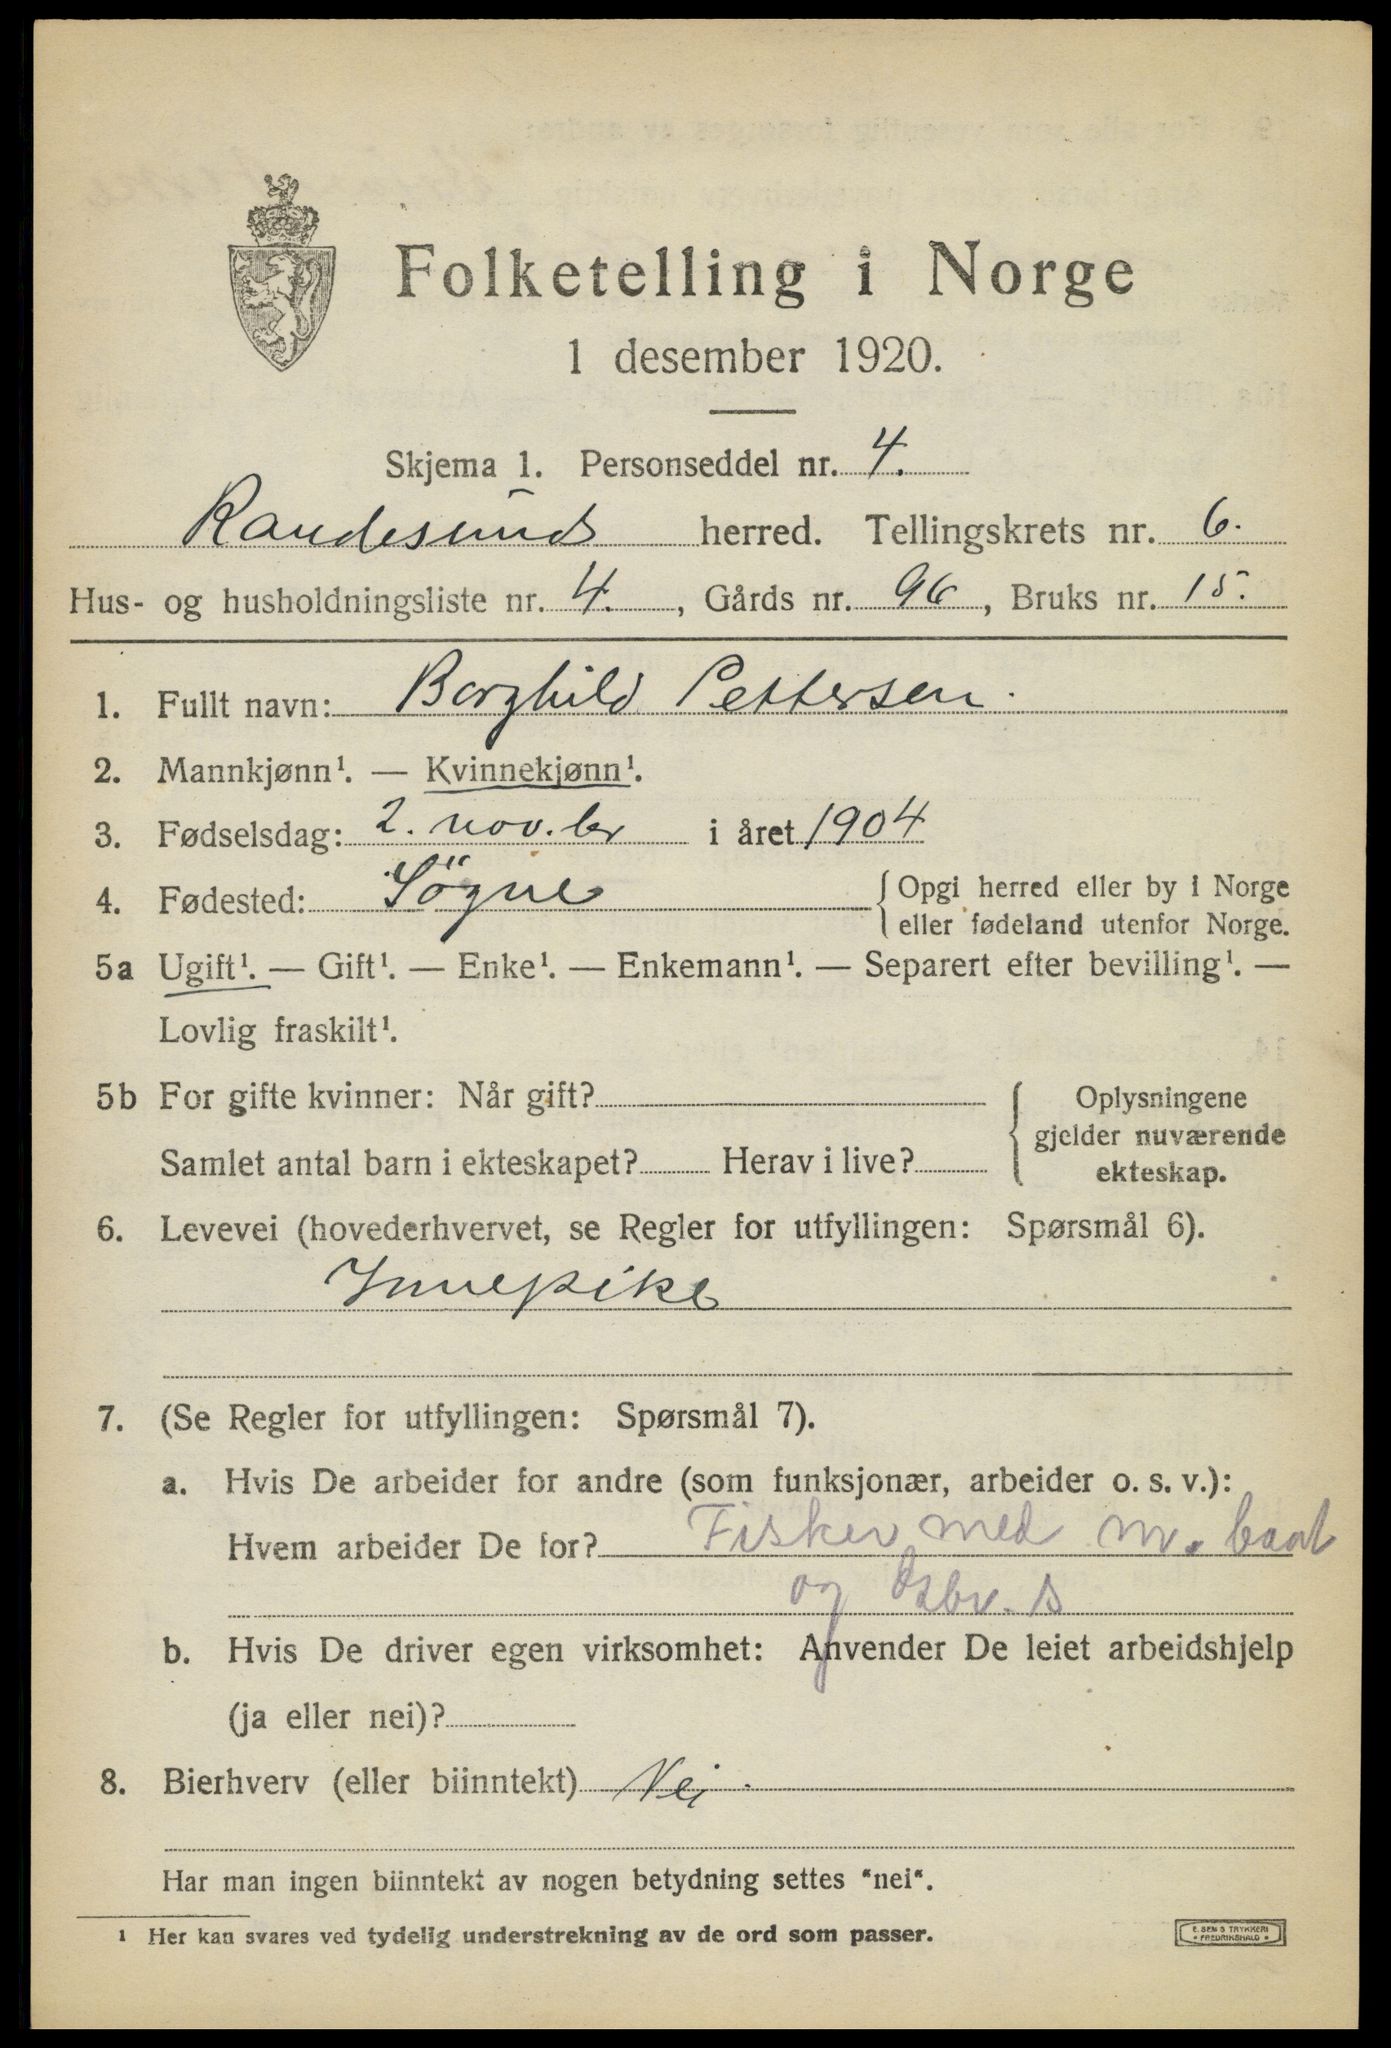 Folketelling i Norge
1 desember 1920.
Skjema 1. Personseddel nr. 4.
Randesund herred. Tellingskrets nr. 6.
Hus- og husholdningsliste nr. 4., Gårds nr. 96, Bruks nr. 15.
1. Fullt navn: Borghild Pettersen.
2. Mannkjønn¹. — Kvinnekjønn¹.
3. Fødselsdag: 2. nov.br i året 1904
4. Fødested: Sögne {Opgi herred eller by i Norge
eller fødeland utenfor Norge.
5a Ugift¹. — Gift¹. — Enke¹. — Enkemann¹. — Separert efter bevilling¹. —
Lovlig fraskilt¹.
5b For gifte kvinner: Når gift?
Samlet antal barn i ekteskapet? Herav i live?
{Oplysningene
gjelder nuværende
ekteskap.
6. Levevei (hovederhvervet, se Regler for utfyllingen: Spørsmål 6).
Innepike
7. (Se Regler for utfyllingen: Spørsmål 7).
a. Hvis De arbeider for andre (som funksjonær, arbeider o. s. v.):
Hvem arbeider De for? Fisker med m. baat
og
b. Hvis De driver egen virksomhet: Anvender De leiet arbeidshjelp
(ja eller nei)?
8. Bierhverv (eller biinntekt) Nei.
Har man ingen biinntekt av nogen betydning settes "nei".
¹ Her kan svares ved tydelig understrekning av de ord som passer.
E. SEM S TRYKKERI
* FREDRIKSHALD *